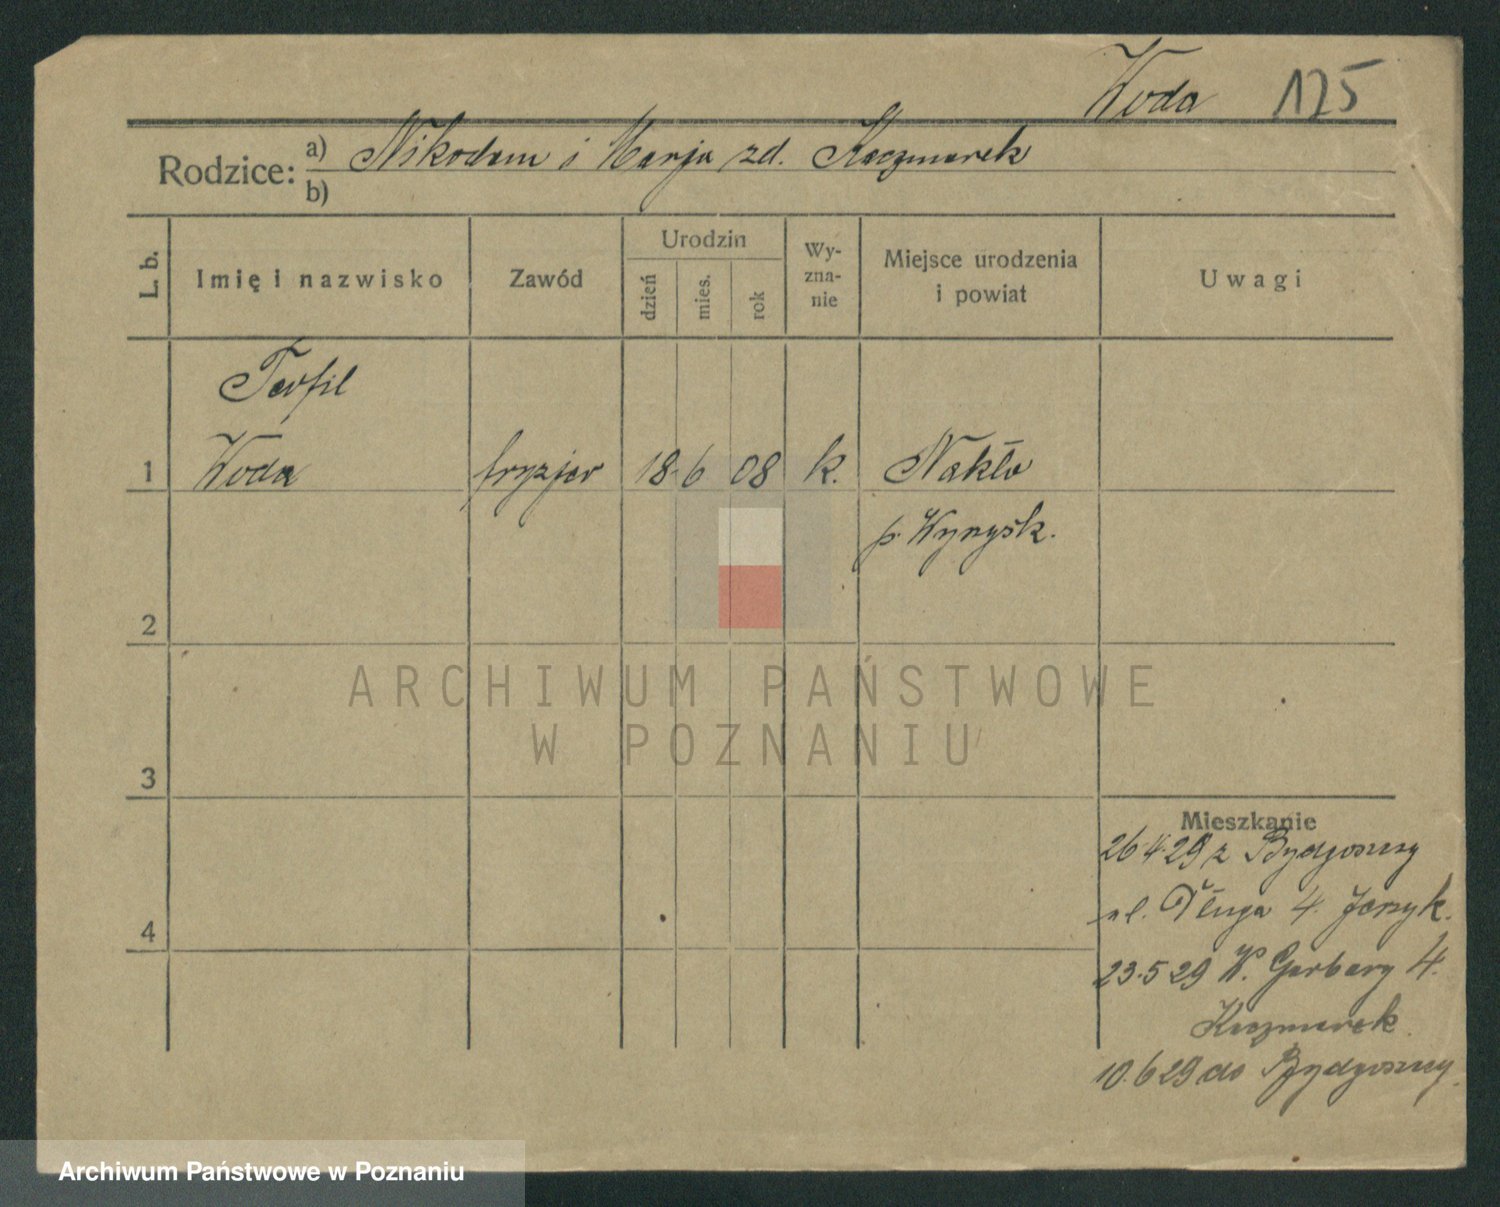 Woda 175
Rodzice: a) Nikodem i Marja zd. Kaczmarek
b)
L. b. Imię i nazwisko Zawód Urodzin dzień mies. rok Wy-zna-nie Miejsce urodzenia i powiat Uwagi
Teofil
1 Woda fryzjer 18. 6 08 k. Nakło
p. Wyrzysk.
2
ARCHIWUM PAŃSTWOWE
W POZNANIU
3
Mieszkanie
26.4.29 z Bydgoszczy
ul. Długa 4.
4
23.5.29 W. Garbary 4.
Kaczmarek
10.6.29 do Bydgoszczy.
Archiwum Państwowe w Poznaniu